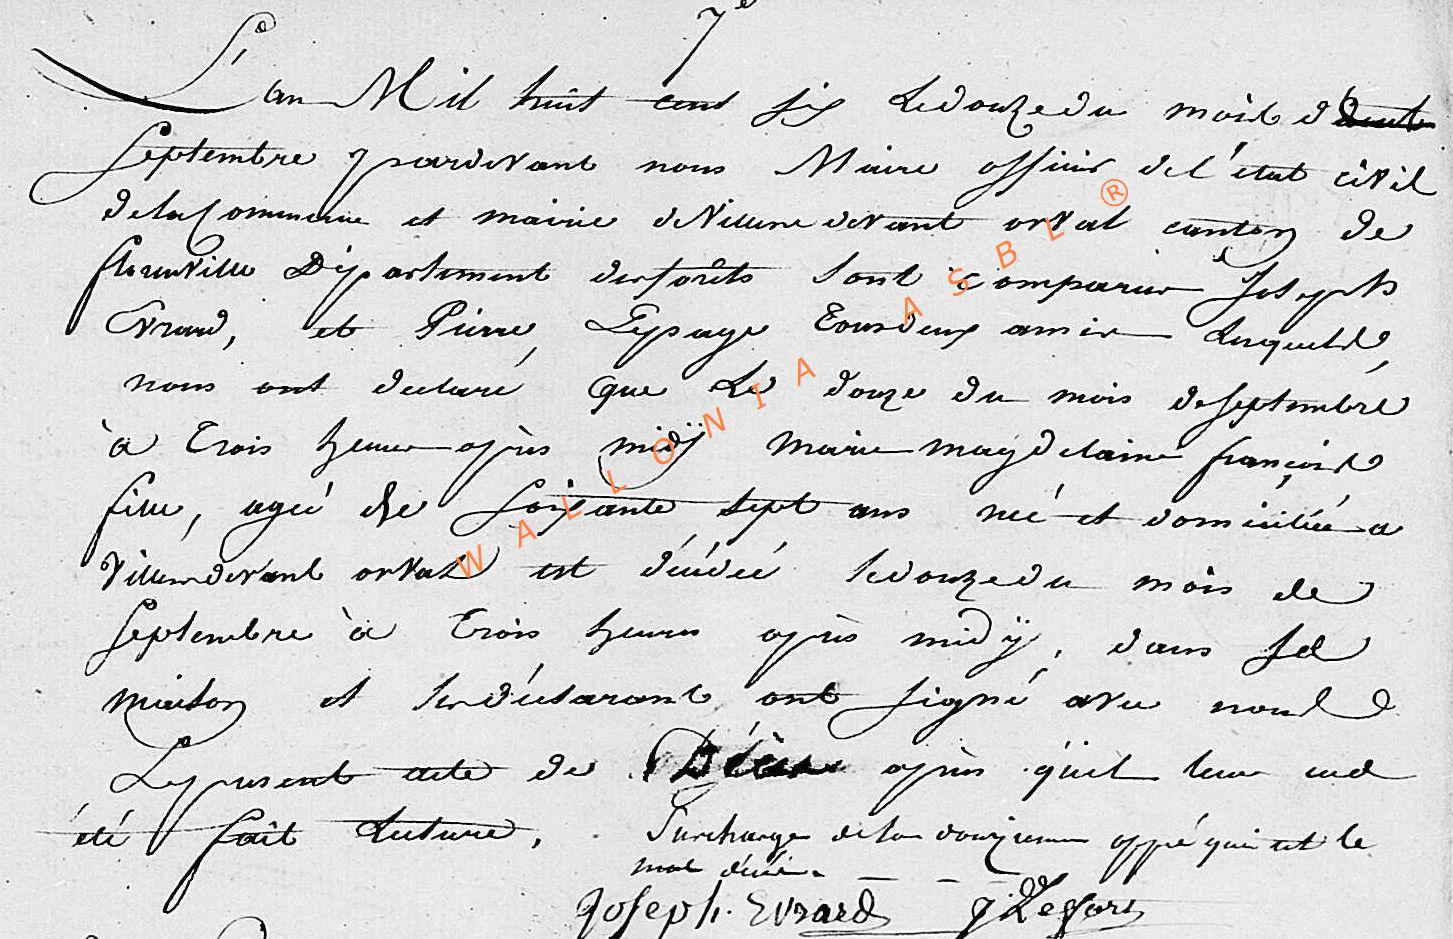 7e
L'an Mil huit cent six Le douze du mois d
Septembre pardevant nous Maire officier de l'état civil
de la Commune et mairie de Villere devant orval canton de
florenville Département des forêts sont comparus Joseph
Evrard, et Pierre Lepage tous deux amis Lesquels,
nous ont déclaré que Le douze du mois de septembre
à trois heure après midÿ marie magdelaine françoise
fille, agé de soixante sept ans né et domiciliée a
Villers devant orval est décédée le douze du mois de
septembre à trois heures après midÿ, dans sa
maison et les déclarant ont signé avec nous
Le present acte de Décès après qu'il leur en a
été fait Lecture,
Surcharge de la douzieme appé qui est le
mot décès.
Joseph. Evrard
WALLONIA ASBL ®